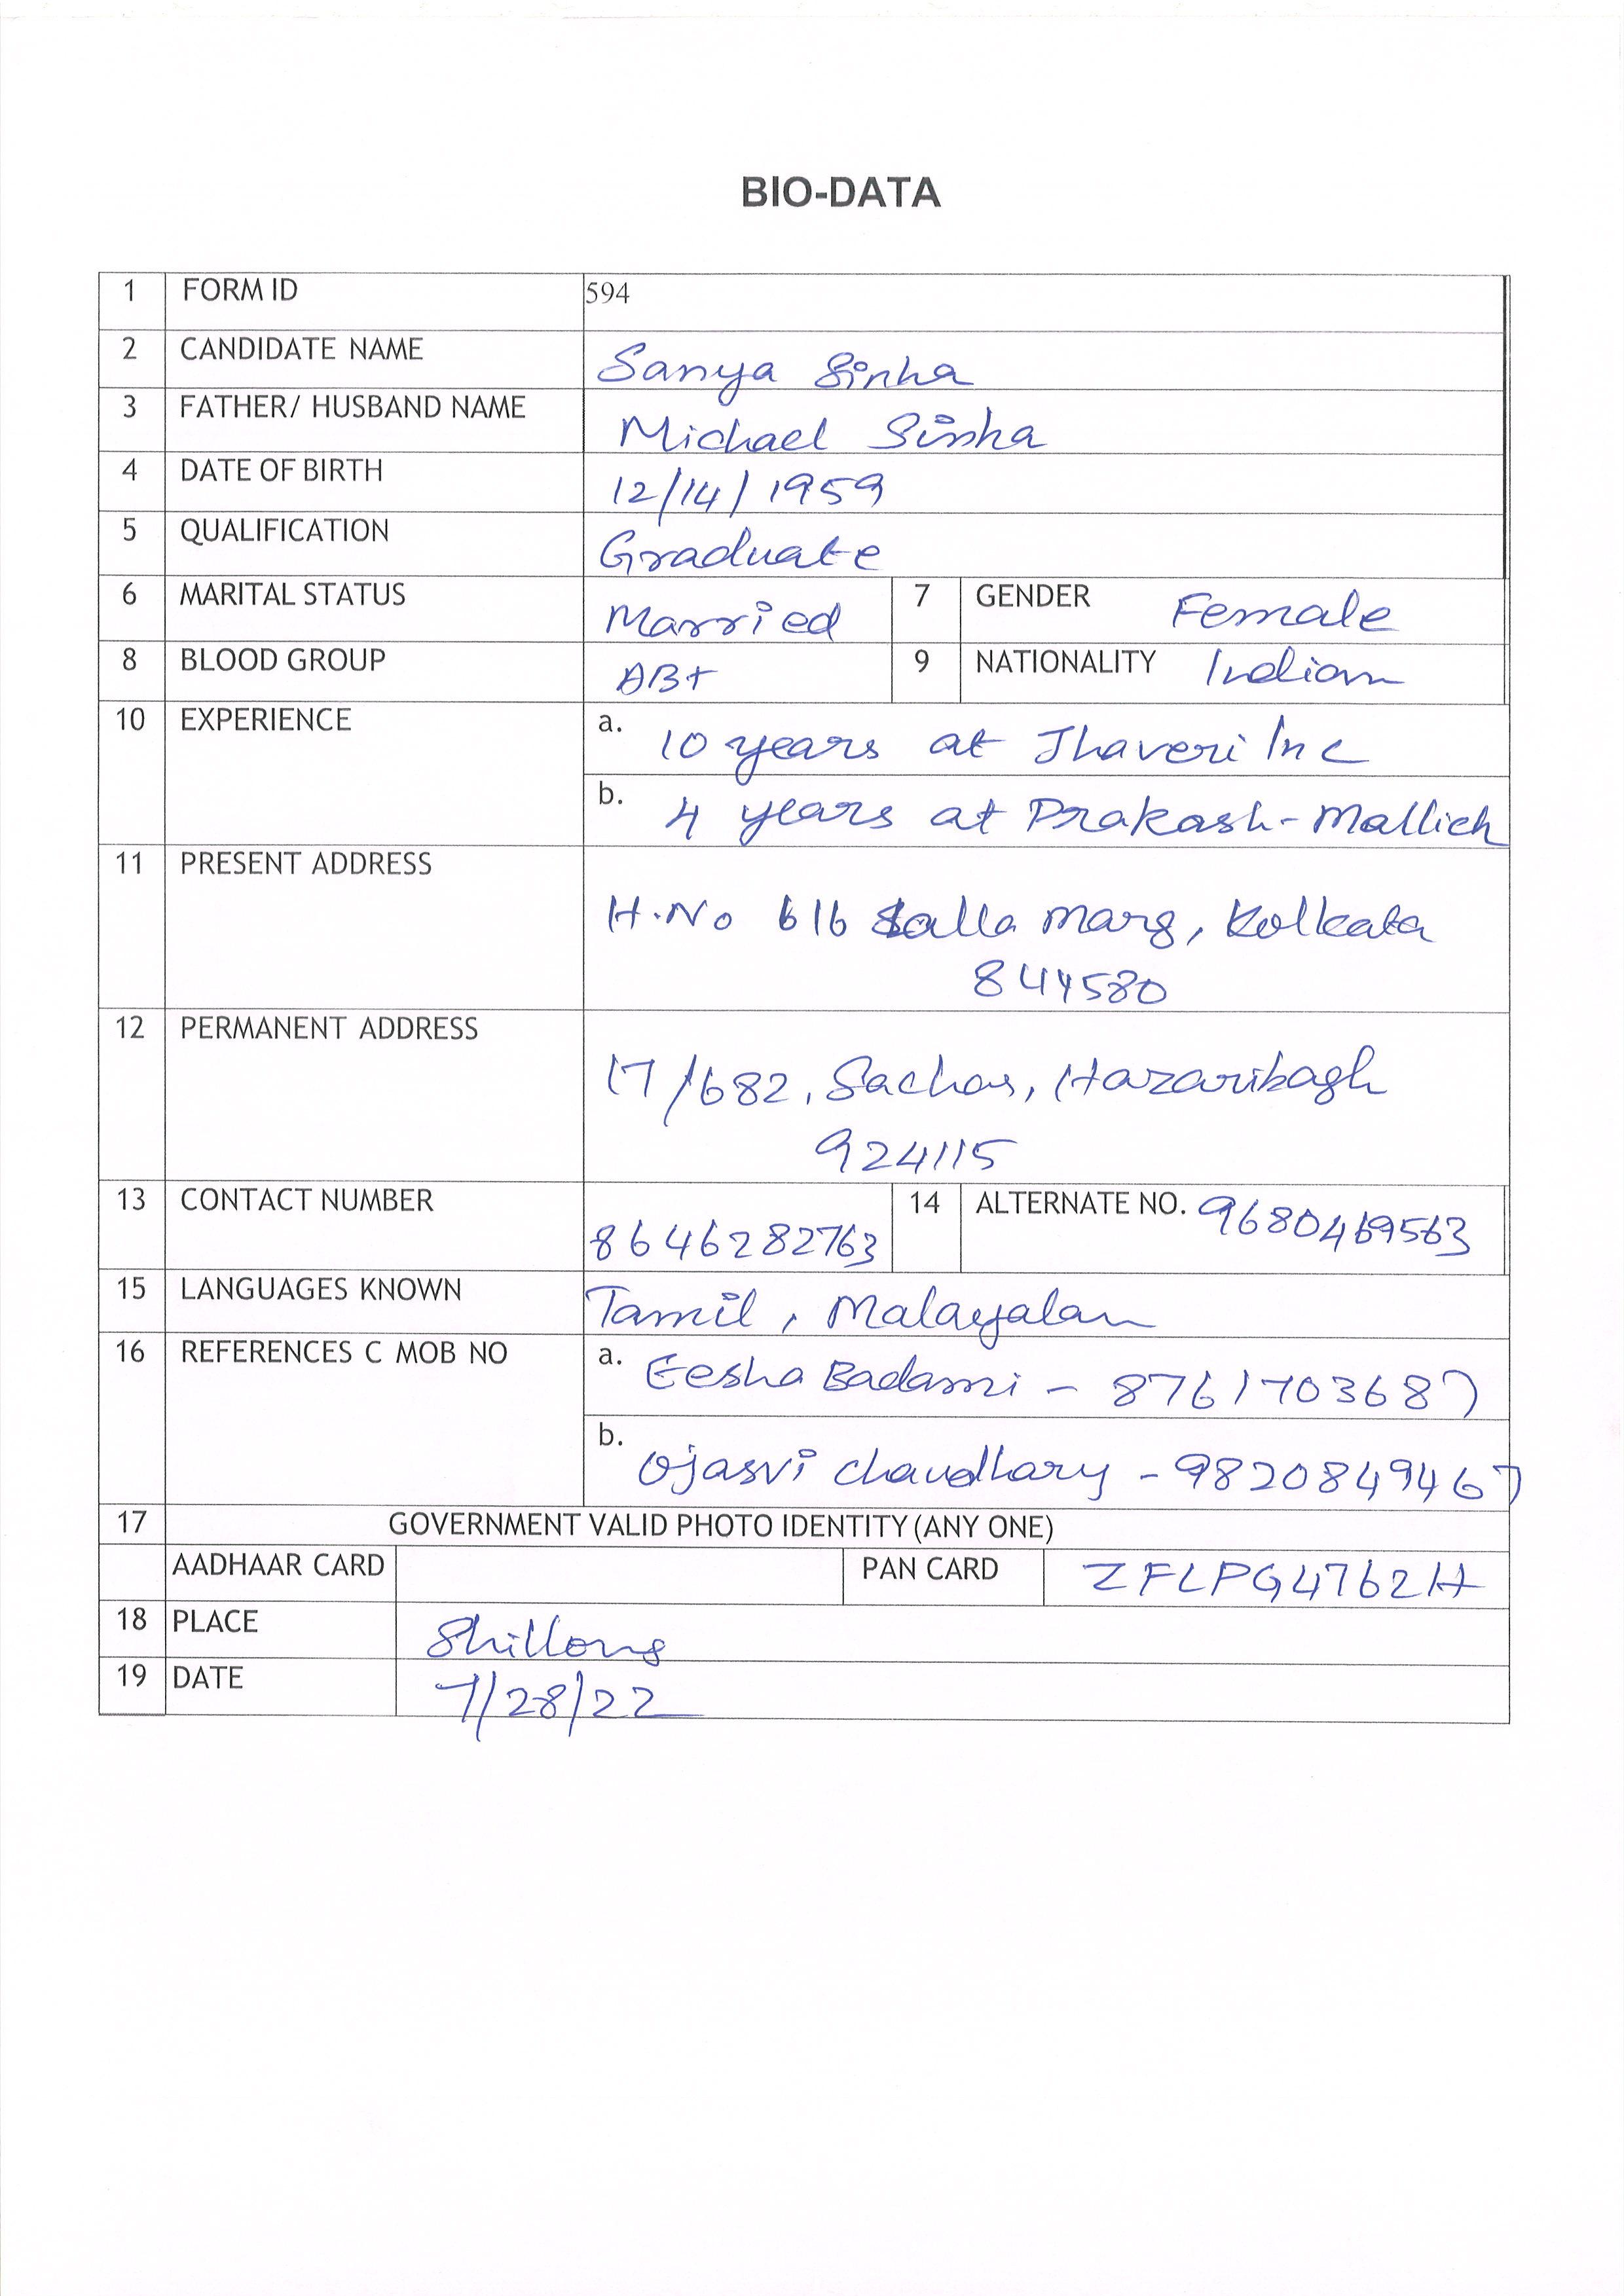 BIO-DATA
1 FORM ID 594
2 CANDIDATE NAME Sanya Sinha
3 FATHER/ HUSBAND NAME Michael Sinha
4 DATE OF BIRTH 12/14/1959
5 QUALIFICATION Graduate
6 MARITAL STATUS Married 7 GENDER Female
8 BLOOD GROUP AB+ 9 NATIONALITY Indian
10 EXPERIENCE a. 10 years at Jhaveri Inc
b. 4 years at Prakash-Mallick
11 PRESENT ADDRESS
H.No 616 Salla Marg, Kolkata
844580
12 PERMANENT ADDRESS
17/682, Sachar, Hazaribagh
924115
13 CONTACT NUMBER 8646282763 14 ALTERNATE NO. 9680469563
15 LANGUAGES KNOWN Tamil, Malayalam
16 REFERENCES C MOB NO a. Eesha Badami - 8761703687
b. Ojasvi Chaudhary - 9820849467
17 GOVERNMENT VALID PHOTO IDENTITY (ANY ONE)
AADHAAR CARD PAN CARD ZFLPG4762H
18 PLACE Shillong
19 DATE 7/28/22